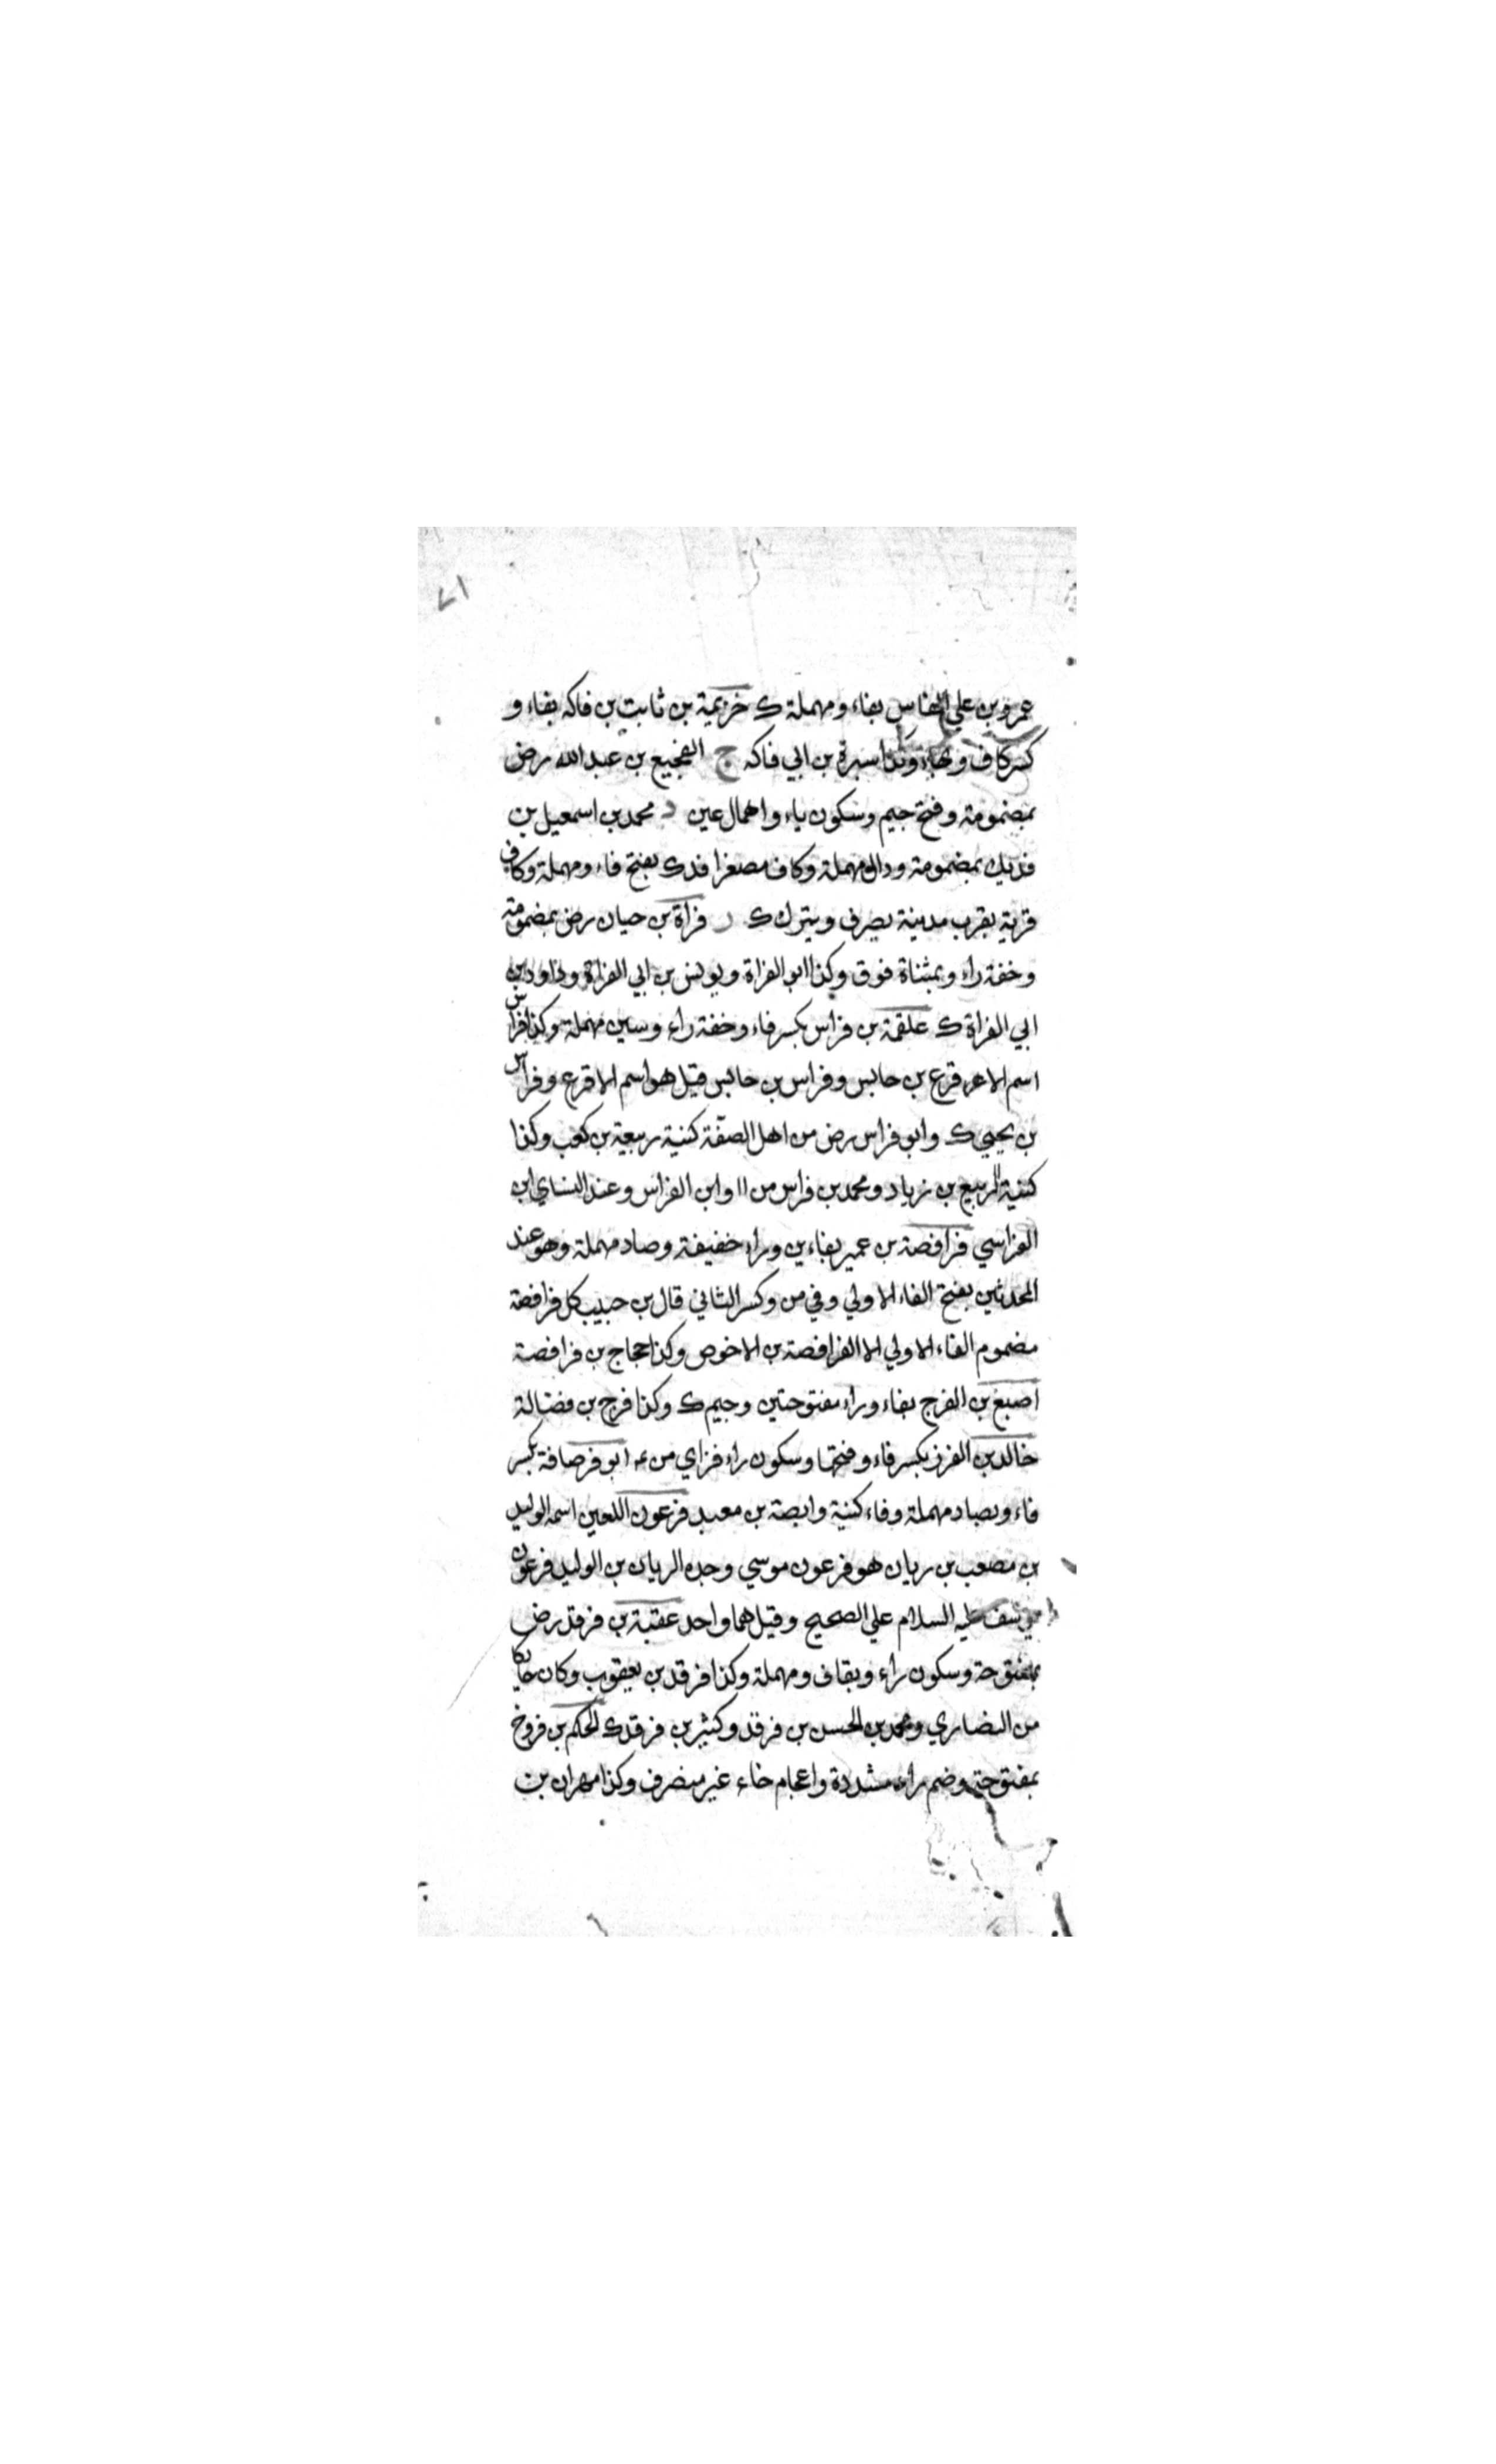 ٧١
عمرو بن علي الفاس بفاء ومهملة ك خزيمة بن ثابت بن فاكه بفاء و
كسر كاف وبهاء وكذا سبرة بن ابي فاكه ج الفجيع بن عبد الله رض
بمضمومة وفتح جيم وسكون ياء واهمال عين د محمد بن اسمعيل بن
فديك بمضمومة ودال مهملة وكاف مصغرا فدك بفتح فاء ومهملة وكاف
قرية بقرب مدينة يصرف ويترك ك ر فراة بن حيان رض بمضمومة
وخفة راء وبمثناة فوق وكذا ابو الفراة ويونس بن ابي الفراة وداود بن
ابي الفراة ك علقمة بن فراس بكسر فاء وخفة راء وسين مهملة وكذا فراس
اسم الاعر قرع بن حابس وفراس بن حابس قيل هو اسم الاقرع وفراس
بن يحيي ك وابو فراس رض من اهل الصفة كنية ربيعة بن كعب وكذا
كنية الربيع بن زياد ومحمد بن فراس من ١١ وابن الفراس وعند النساي ابن
الفراسي فرافصة بن عمير بفاءين وراء خفيفة وصاد مهملة وهو عند
المحدثين بفتح الفاء الاولي وفي من وكسر الثاني قال بن حبيب كل فرافصة
مضموم الفاء الاولي الا الفرافصة بن الاخوص وكذا حجاج بن فرافصة
اصبغ بن الفرج بفاء وراء مفتوحتين وجيم ك وكذا فرج بن فضالة
خالد بن الفرز بكسر فاء وفتحها وسكون راء فزاي من ابو فرصافة بكسر
فاء وبصاد مهملة وفاء كنية وابصة بن معبد فرعون اللعين اسمه الوليد
بن مصعب بن ريان هو فرعون موسي وجده الريان بن الوليد فرعون
يوسف عليه السلام علي الصحيح وقيل هما واحد عقبة بن فرقد رض
بمفتوحة وسكون راء وبقاف ومهملة وكذا فرقد بن يعقوب وكان حايكا
من النصاري ومحمد بن الحسن بن فرقد وكثير بن فرقد ك الحكم بن فروخ
بمفتوحة وضم راء مشددة واعجام خاء غير منصرف وكذا مهران بن